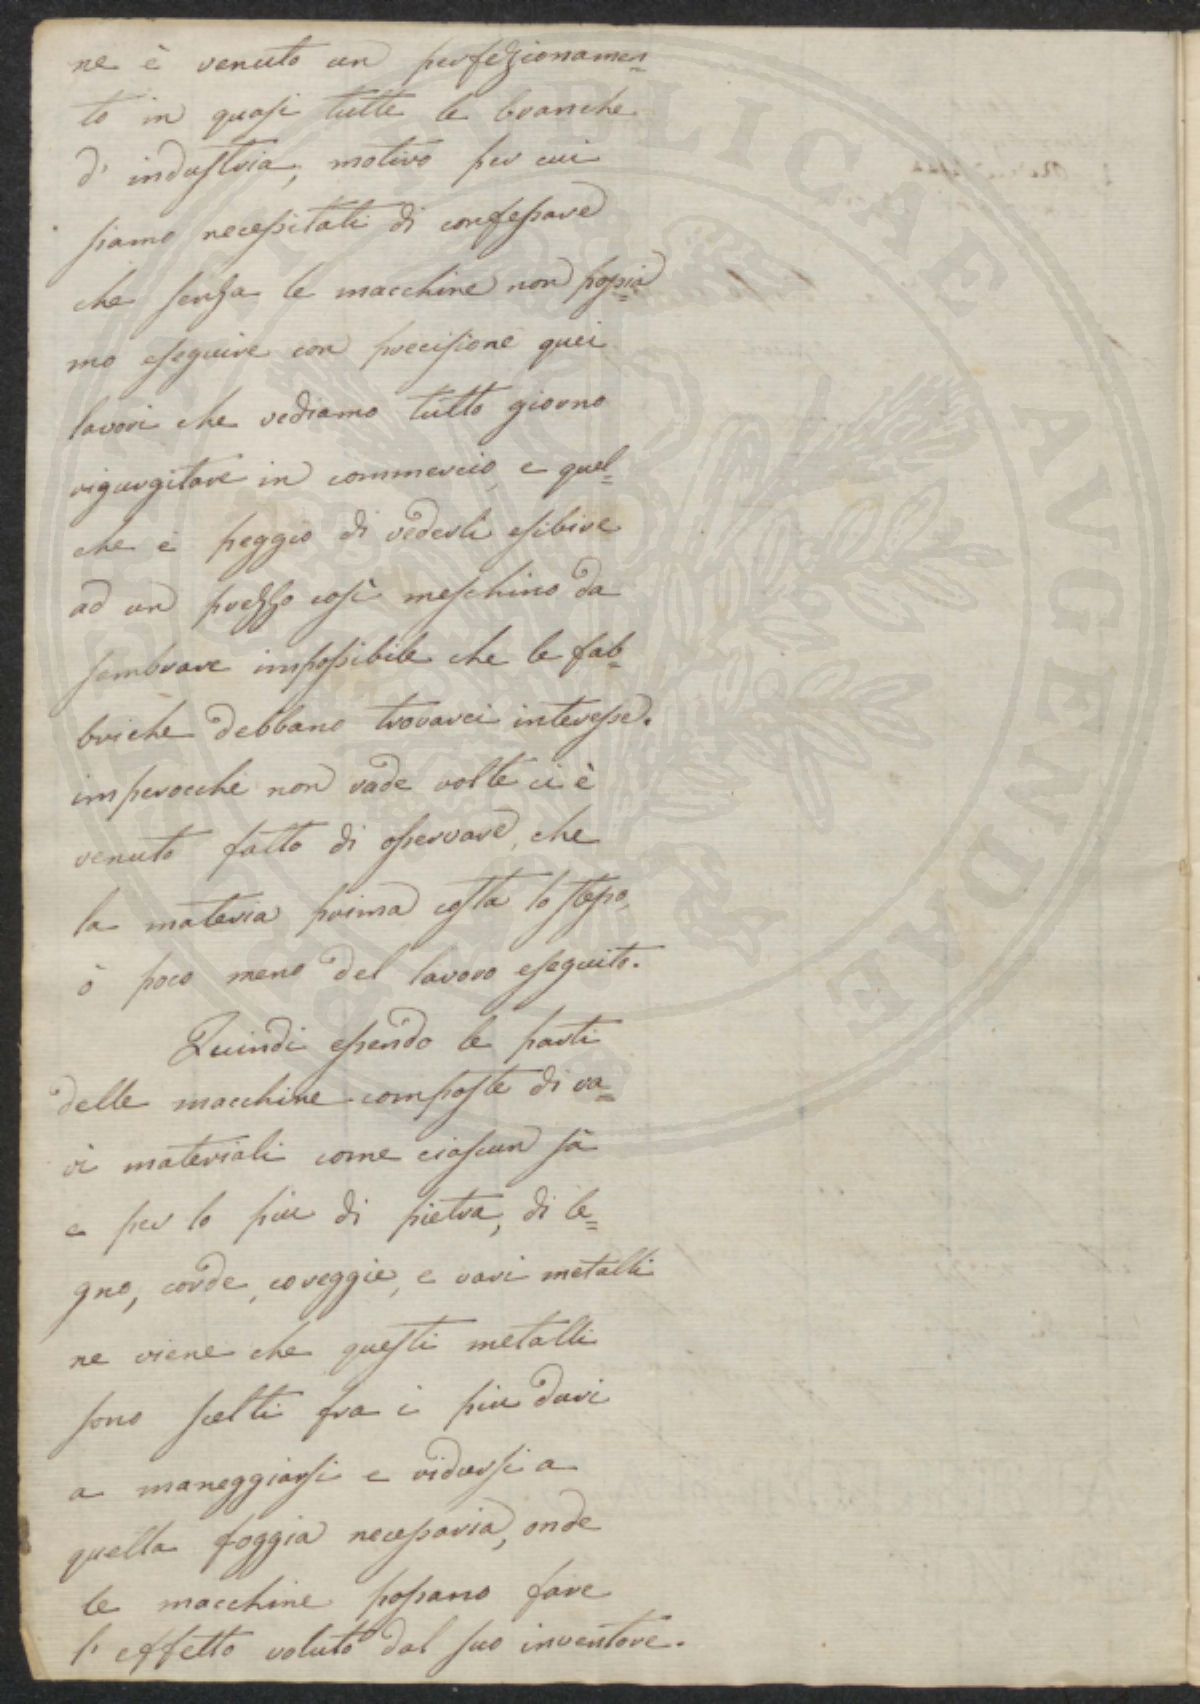 ne è venuto un perfezionamen=
to in quasi tutte le branche
d' industria, motivo per cui
siamo necessitati di confessare
che senza le macchine non possia=
mo eseguire con precisione quei
lavori che vediamo tutto giorno
rigurgitare in commercio, e quel=
che è peggio di vederli esibire
ad un prezzo così meschino da
sembrare impossibile che le fab=
briche debbano trovarci interesse.
imperocchè non rade volte ci è
venuto fatto di osservare, che
la materia prima costa lo stesso,
ò poco meno del lavoro eseguito.
Quindi essendo le parti
delle macchine composte di va=
ri materiali come ciascun sà
e per lo piu di pietra, di le=
gno, corde, coreggie, e vari metalli
ne viene che questi metalli
sono scelti fra i piu duri
a maneggiarsi e ridursi a
quella foggia necessaria, onde
le macchine possano fare
l' effetto voluto dal suo inventore.